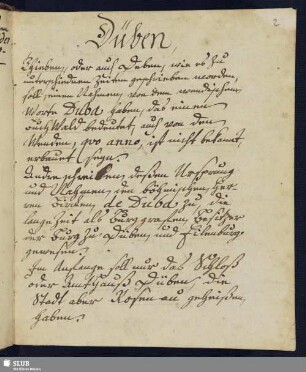 2
Düben,
Thieben, oder auch Deben, wie es zu
unterschiednen Zeiten geschrieben worden,
soll seinen Nahmen von dem wendischen
Worte Duba haben, das einen
Wald bedeutet, auch von den
Wenden, quo anno, ist nicht bekannt,
erbauet seyn.
Andere schreiben dessen Ursprung
und Nahmen den böhmischen Her-
ren Bircken, de Duba zu, die
lange Zeit als Burggrafen, Besitzer
der Burg zu Düben, und Eilenburg
gewesen.
Im Anfange soll nur das Schloß
oder Amthauß Düben, die
Stadt aber Rosenau geheißen
haben.
SLUB